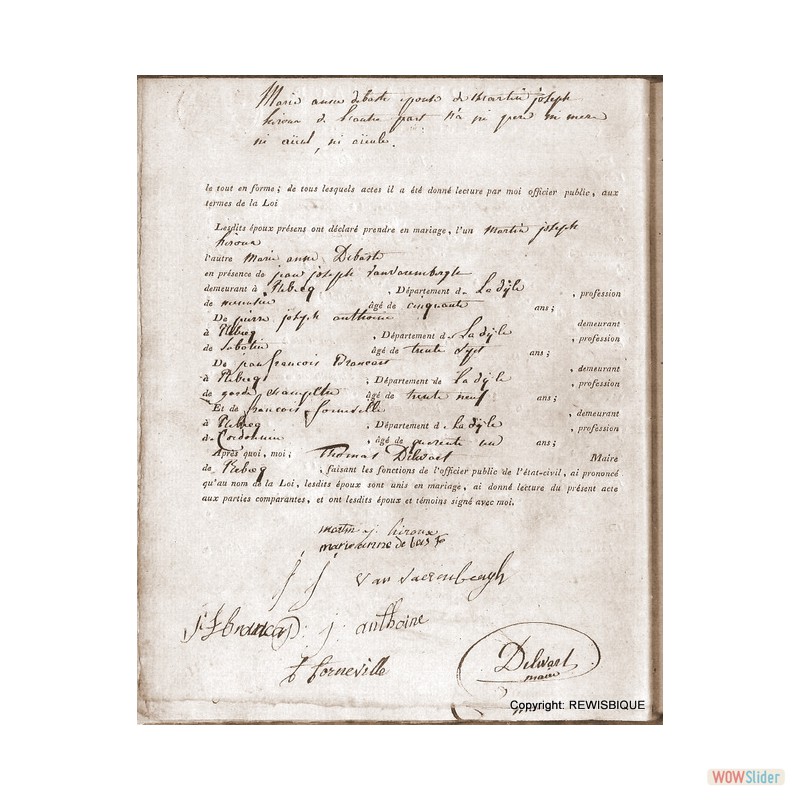 Marie anne debaste epouse de Martin joseph
hiroux de l'autre part n'a ni pere ni mere
ni aïeul, ni aïeule.
le tout en forme; de tous lesquels actes il a été donné lecture par moi officier public, aux
termes de la Loi
Lesdits époux présens ont déclaré prendre en mariage, l'un Martin joseph
hiroux
l'autre Marie anne Debaste
en présence de jean joseph Vanvaerembergh
demeurant à Rebecq , Département d La dÿle , profession
de âgé de cinquante ans;
De pierre joseph anthoine demeurant
à Rebecq , Département d La dÿle , profession
de Sabotier âgé de trente sept ans;
De jean francois Brancart , demeurant
à Rebecq , Département de La dÿle , profession
de garde champetre âgé de trente neuf ans;
Et de francois forneville , demeurant
à Rebecq , Département d La dÿle , profession
de Cordonnier , âgé de quarente un ans;
Après quoi, moi, Thomas Delwart Maire
de Rebecq , faisant les fonctions de l'officier public de l'état-civil, ai prononcé
qu'au nom de la Loi, lesdits époux sont unis en mariage, ai donné lecture du présent acte
aux parties comparantes, et ont lesdits époux et témoins signé avec moi.
martin j. hiroux
marie anne de bast
j j van vaerenbergh
j: f brancart j: anthoine
f forneville
Delwart
maire
Copyright: REWISBIQUE
WOWSlider